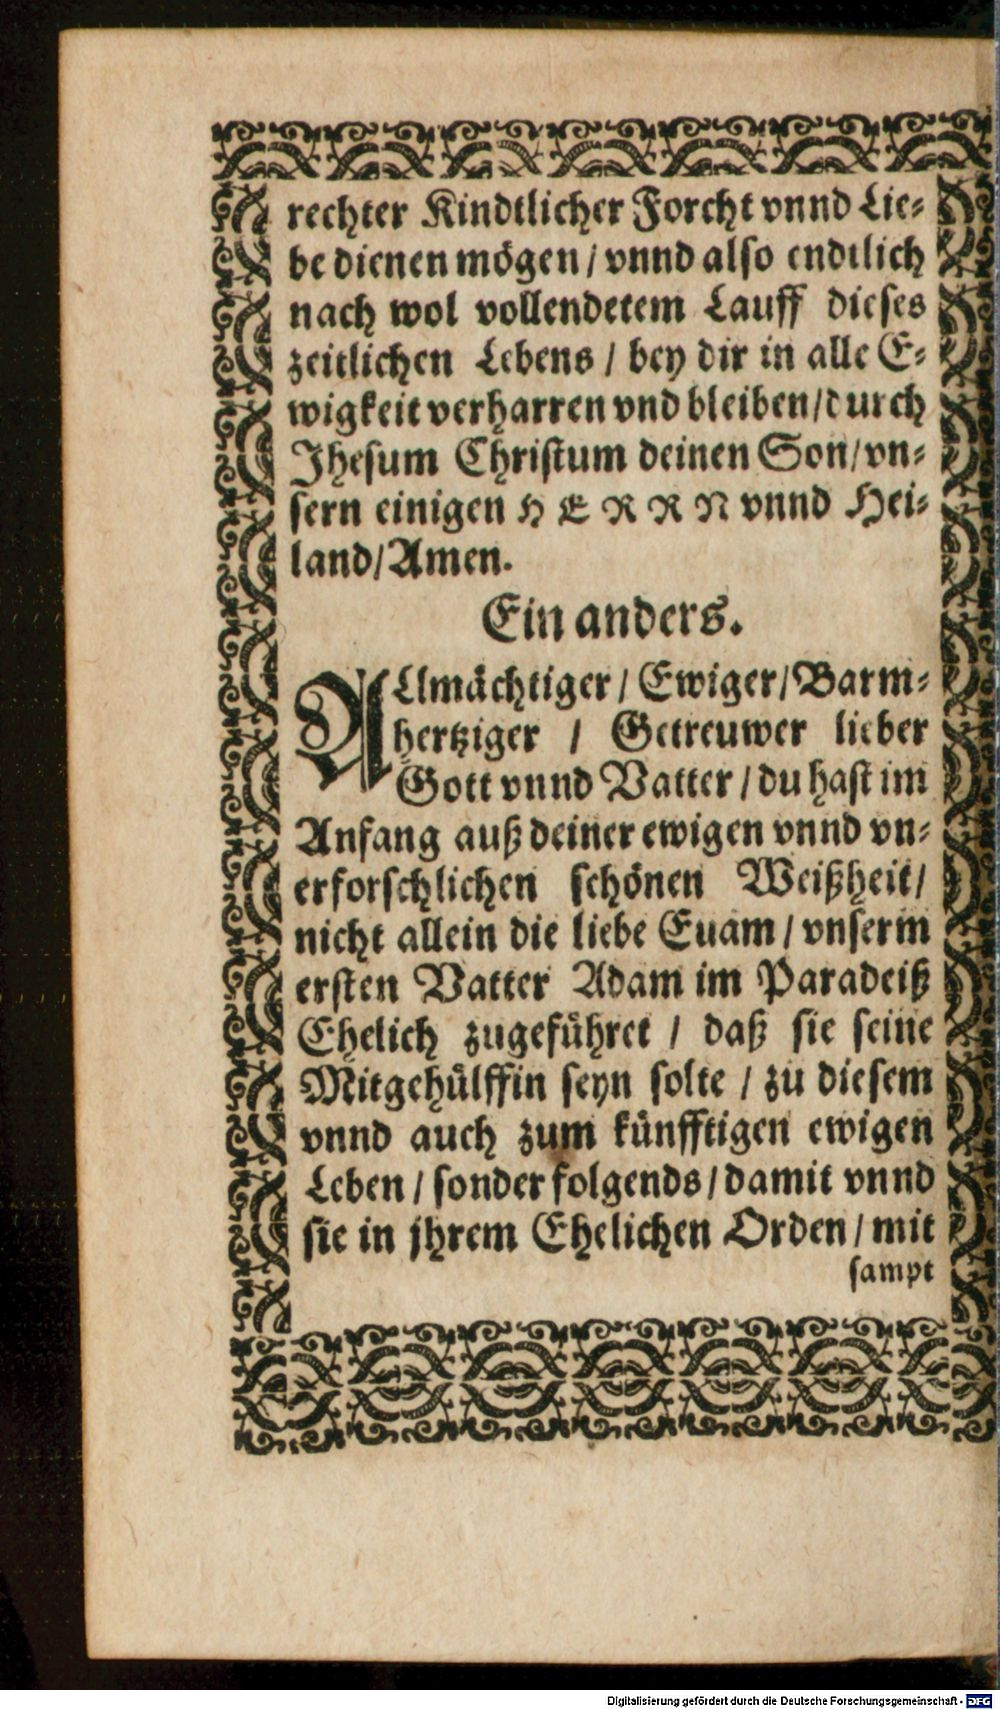 rechter Kindtlicher Forcht vnnd Lie-
be dienen mögen / vnnd also endtlich
nach wol vollendetem Lauff dieses
zeitlichen Lebens / bey dir in alle E-
wigkeit verharren vnd bleiben / durch
Jhesum Christum deinen Son / vn-
sern einigen HERRN vnnd Hei-
land / Amen.
Ein anders.
ALlmächtiger / Ewiger / Barm-
hertziger / Getreuwer lieber
Gott vnnd Vatter / du hast im
Anfang auß deiner ewigen vnnd vn-
erforschlichen schönen Weißheit /
nicht allein die liebe Euam / vnserm
ersten Vatter Adam im Paradeiß
Ehelich zugeführet / daß sie seine
Mitgehülffin seyn solte / zu diesem
vnnd auch zum künfftigen ewigen
Leben / sonder folgends / damit vnnd
sie in jhrem Ehelichen Orden / mit
sampt
Digitalisierung gefördert durch die Deutsche Forschungsgemeinschaft - DFG